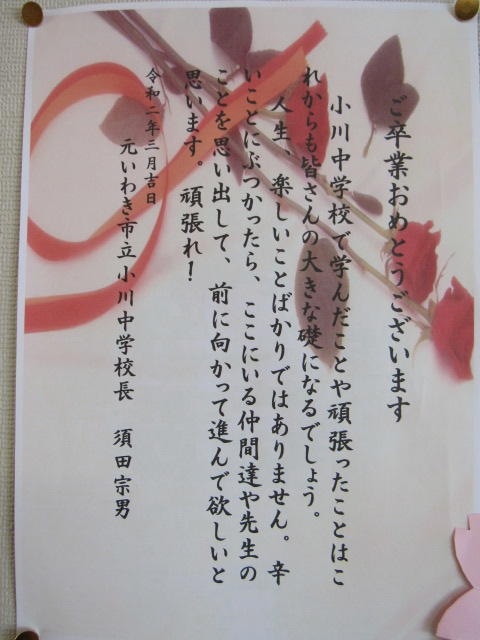 ご卒業おめとうございます
小川中学校で学んだことや頑張ったことはこ
れからも皆さんの大きな礎になるでしょう。
人生、楽しいことばかりではありません。辛
いことにぶつかったら、ここにいる仲間達や先生の
ことを思い出して、前に向かって進んで欲しいと
思います。頑張れ！
令和二年三月吉日
元いわき市立小川中学校長　須田宗男